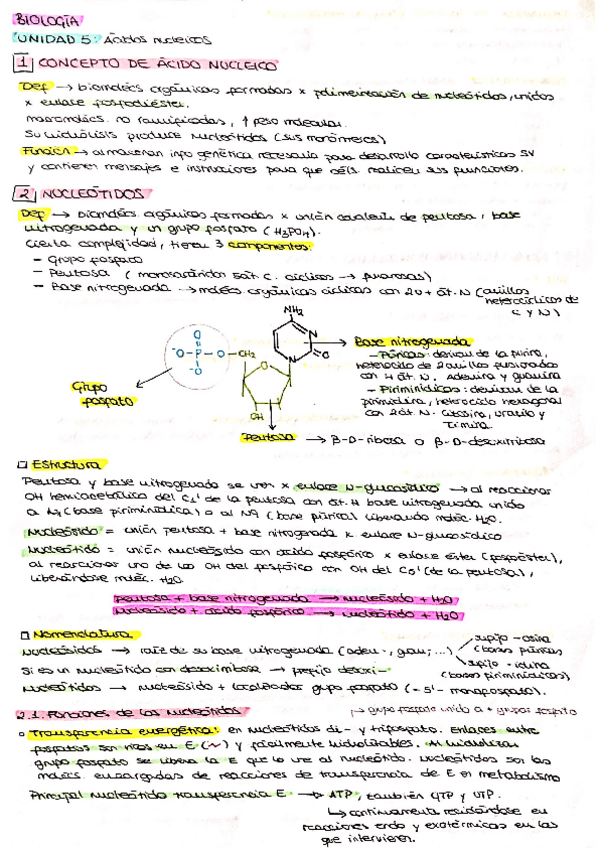 BIOLOGÍA
UNIDAD 5: Ácidos nucleicos
1 CONCEPTO DE ÁCIDO NUCLEICO
Def → biomolécs orgánicas formadas x polimerización de nucleótidos, unidos
x enlace fosfodiéster.
macromolécs. no ramificadas, ↑ peso molecular.
Su hidrólisis produce nucleótidos (sus monómeros)
Función → almacenan info genética necesaria para desarrollo características SV
y contienen mensajes e instrucciones para que céls realicen sus funciones.
2 NUCLEÓTIDOS
Def → biomolécs orgánicas formadas x unión covalente de pentosa, base
nitrogenada y un grupo fosfato (H3PO4).
Cierta complejidad, tienen 3 componentes:
- Grupo fosfato
- Pentosa (monosacáridos 5át. C. cíclicos → furanosas)
- Base nitrogenada → molécs orgánicas cíclicas con 2 ó + át. N (anillos
heterocíclicos de
C y N)
NH2
N
N
O
O
-O-P-O-CH2
-O
O
OH
Grupo
fosfato
Pentosa → β-D-ribosa o β-D-desoxirribosa
Base nitrogenada
- Púricas: derivan de la purina,
heterociclo de 2 anillos fusionados
con 4 át. N. Adenina y guanina
- Pirimidínicas: derivan de la
pirimidina, heterociclo hexagonal
con 2 át. N. Citosina, uracilo y
timina.
Estructura
Pentosa y base nitrogenada se unen x enlace N-glucosídico → al reaccionar
OH hemiacetálico del C1' de la pentosa con át. H base nitrogenada unido
a N1 (base pirimidínica) o al N9 (base púrica) liberando moléc. H2O.
Nucleósido = unión pentosa + base nitrogenada x enlace N-glucosídico
Nucleótido = unión nucleósido con ácido fosfórico x enlace éster (fosfoéster),
al reaccionar uno de los OH del fosfórico con OH del C5' (de la pentosa),
liberándose moléc. H2O
Pentosa + base nitrogenada → nucleósido + H2O
Nucleósido + ácido fosfórico → nucleótido + H2O
Nomenclatura
Nucleósidos → raíz de su base nitrogenada (aden-, guan-, ...)
sufijo -osina
(bases púricas)
sufijo -idina
(bases pirimidínicas)
Si es un nucleótido con desoxirribosa → prefijo desoxi-
Nucleótidos → nucleósido + localizador grupo fosfato (-5'- monofosfato).
2.1. Funciones de los nucleótidos
→ grupo fosfato unido a + grupos fosfato
Transferencia energética: en nucleótidos di- y trifosfato. Enlaces entre
fosfatos son ricos en E (~) y fácilmente hidrolizables. Al hidrolizar
grupo fosfato se libera la E que lo une al nucleótido. Nucleótidos son las
molécs. encargadas de reacciones de transferencia de E en metabolismo
Principal nucleótido transferencia E → ATP, también GTP y UTP.
↳ continuamente reciclándose en
reacciones endo y exotérmicas en las
que intervienen.